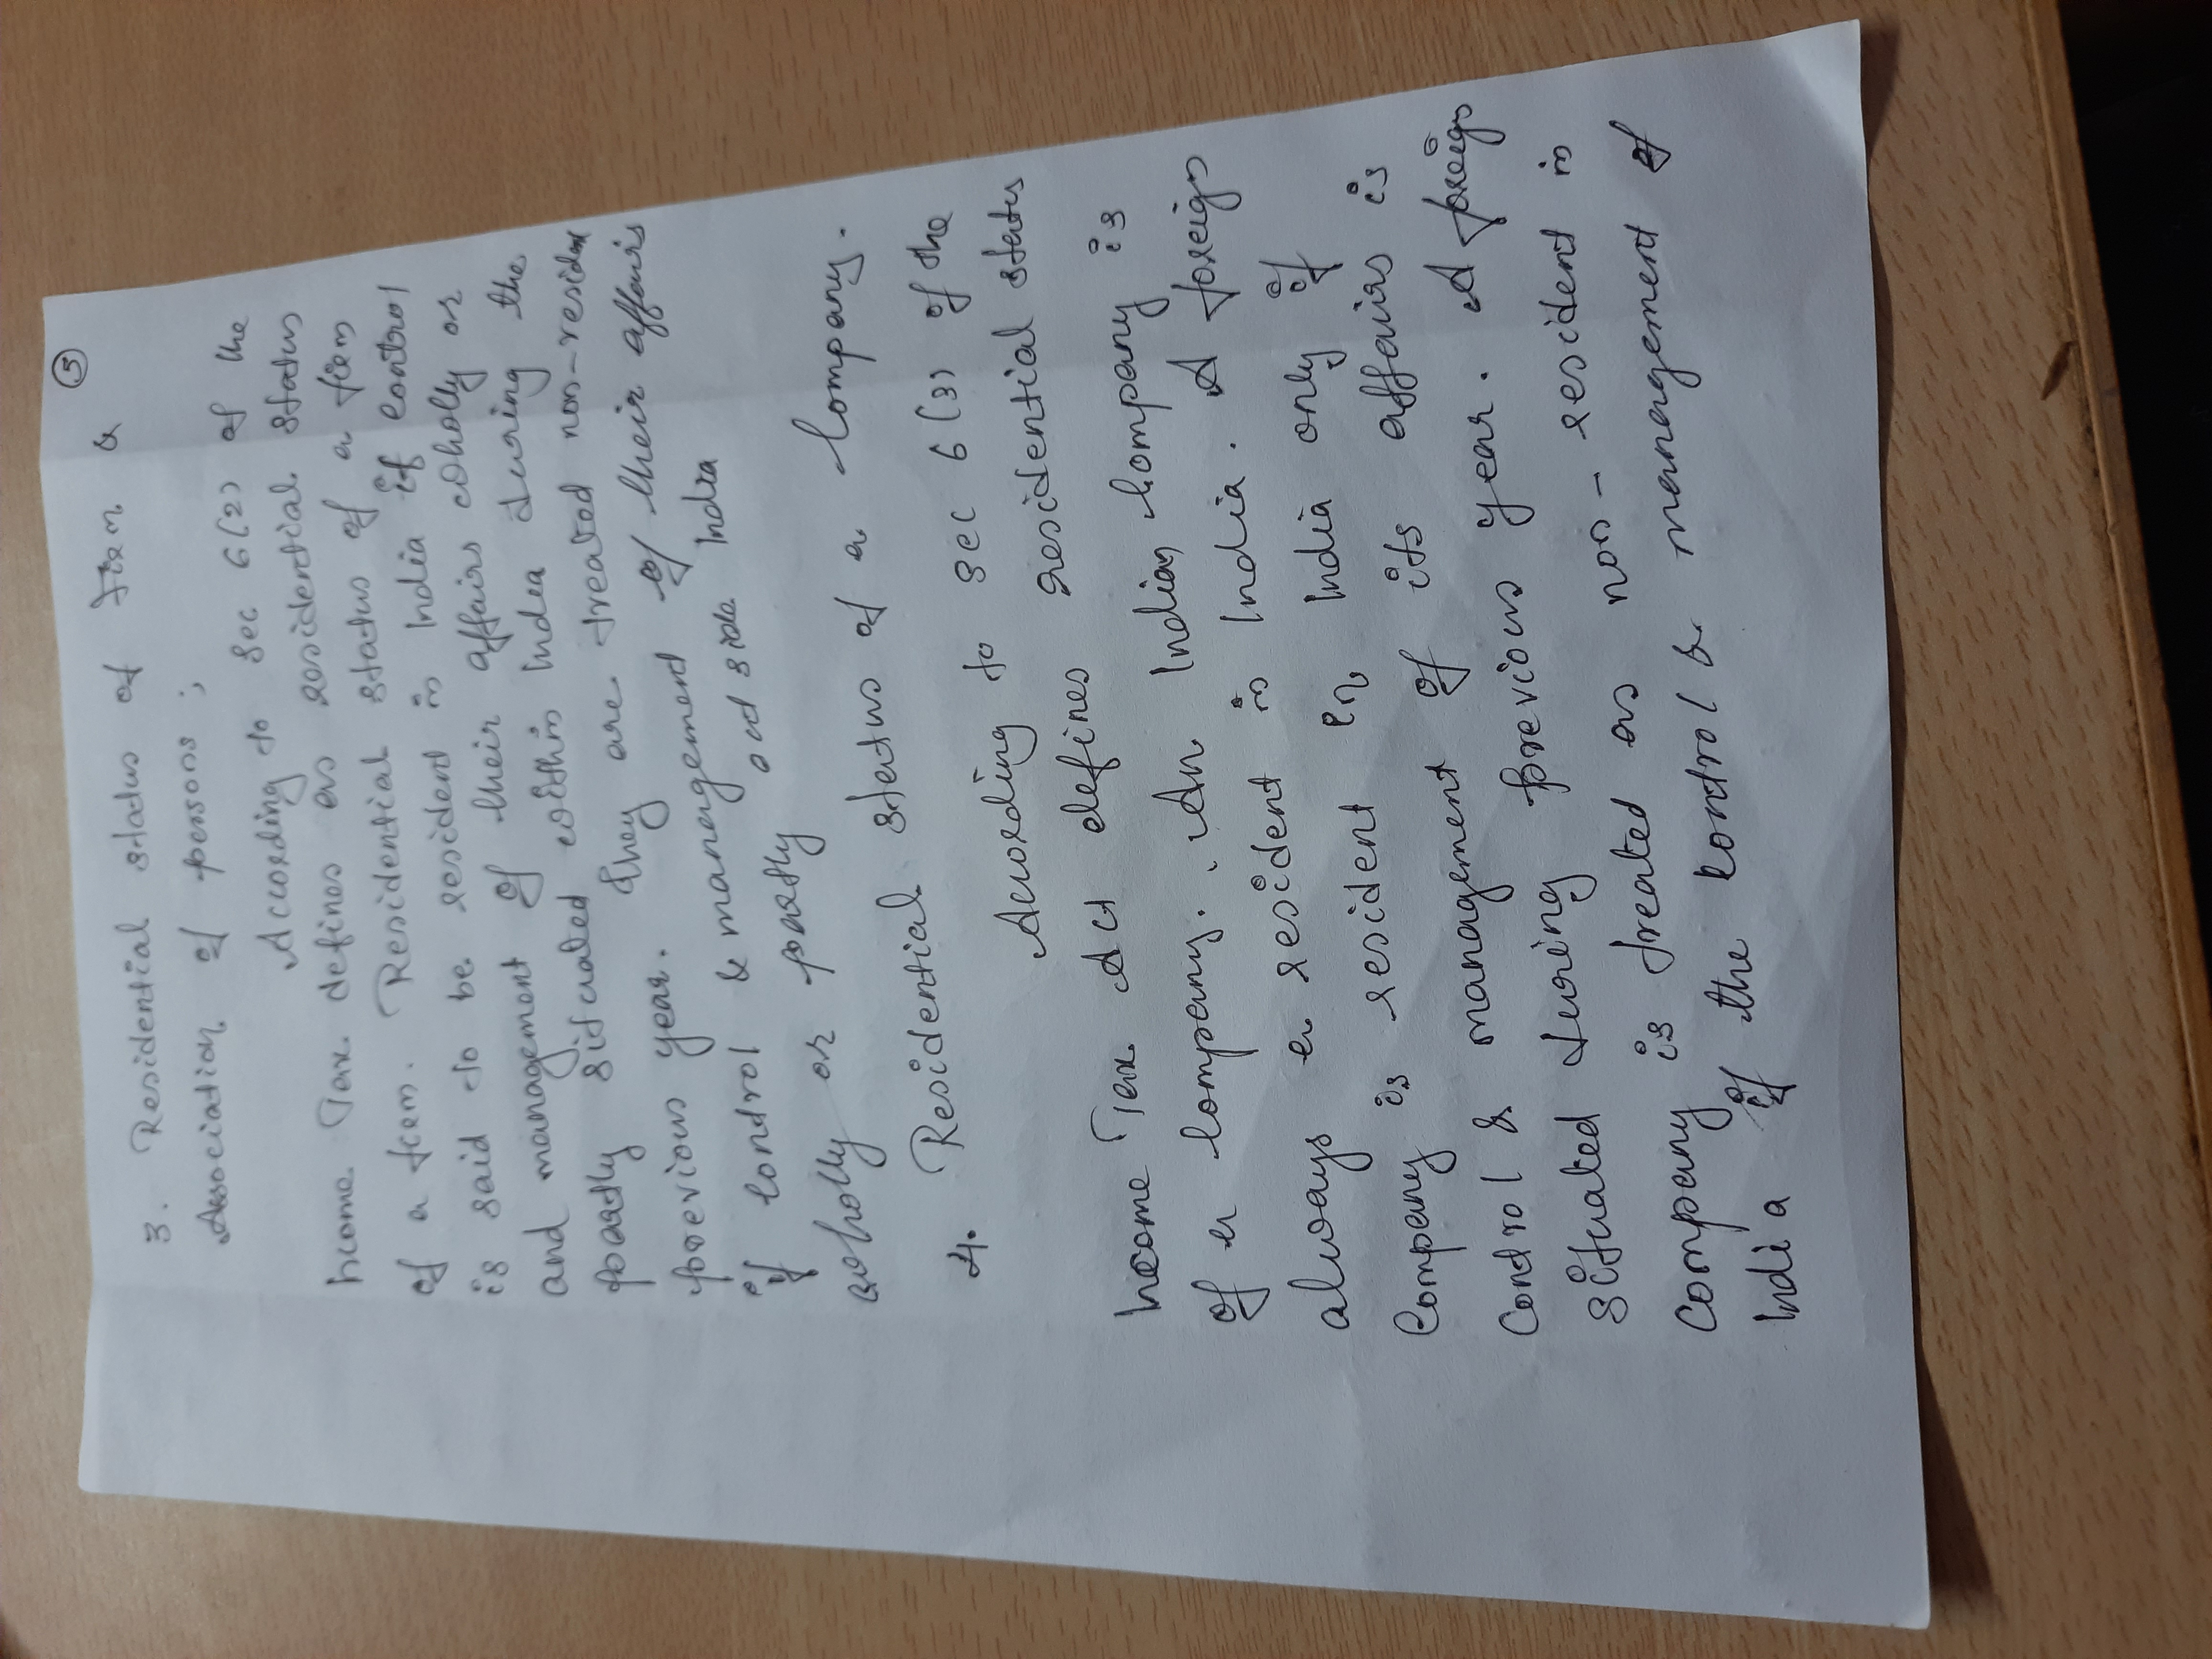 5
3. Residential status of firm &
Association of persons ;
According to sec 6(2) of the
Income Tax defines as residential status
of a firm. Residential status of a firm
is said to be resident in India if control
and management of their affairs wholly or
partly situated within India during the
previous year. They are treated non-resident
if control & management of their affairs
wholly or partly out side India
4. Residential status of a Company.
According to sec 6(3) of the
Income Tax Act defines residential status
of a Company. An Indian Company is
always a resident in India. A foreign
Company is resident in India only if
Control & management of its affairs is
situated during previous year. A foreign
Company is treated as non-resident in
India if the control & management of